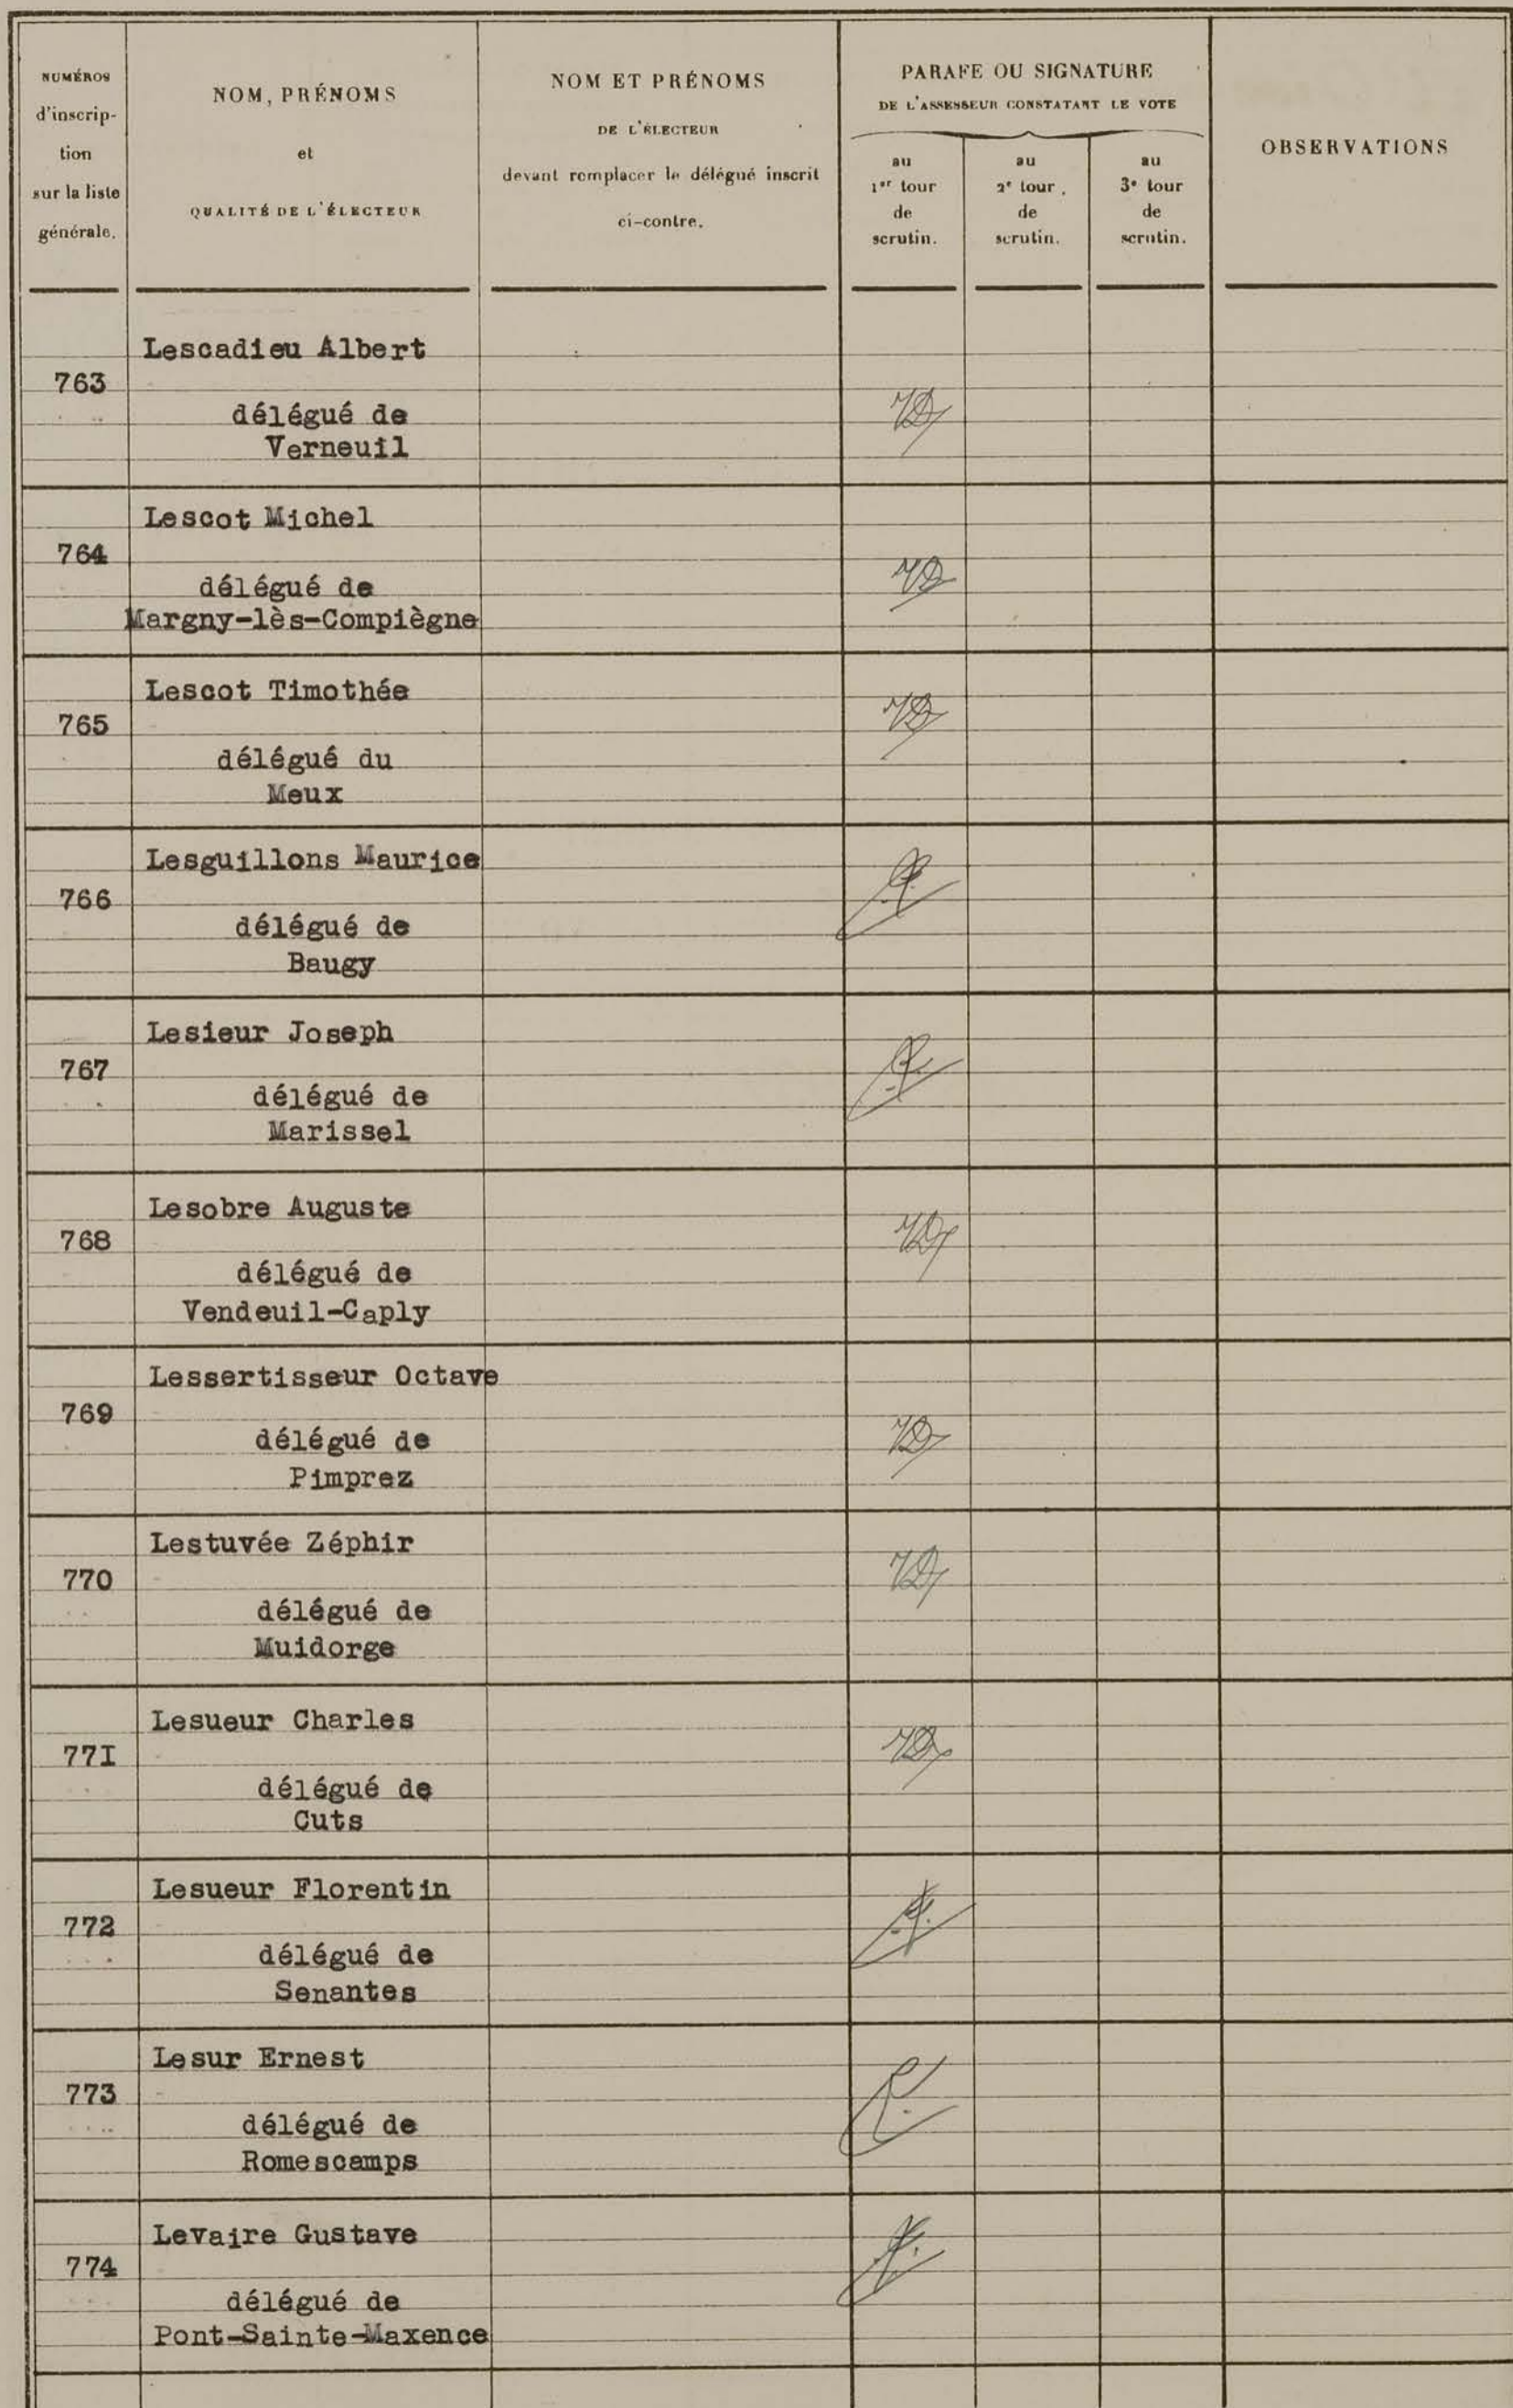 NUMÉROS
d'inscrip-
tion
sur la liste
générale.
NOM, PRÉNOMS
et
QUALITÉ DE L'ÉLECTEUR
NOM ET PRÉNOMS
DE L'ÉLECTEUR
devant remplacer le délégué inscrit
ci-contre.
PARAFE OU SIGNATURE
DE L'ASSESSEUR CONSTATANT LE VOTE
au
1er tour
de
scrutin.
au
2e tour.
de
scrutin.
au
3e tour
de
scrutin.
OBSERVATIONS
Lescadieu Albert
763
délégué de
Verneuil
Lescot Michel
764
délégué de
Margny-lès-Compiègne
Lescot Timothée
765
délégué du
Meux
Lesguillons Maurice
766
délégué de
Baugy
Lesieur Joseph
767
délégué de
Marissel
Lesobre Auguste
768
délégué de
Vendeuil-Caply
Lessertisseur Octave
769
délégué de
Pimprez
Lestuvée Zéphir
770
délégué de
Muidorge
Lesueur Charles
77I
délégué de
Cuts
Lesueur Florentin
772
délégué de
Senantes
Lesur Ernest
773
délégué de
Romescamps
Levaire Gustave
774
délégué de
Pont-Sainte-Maxence